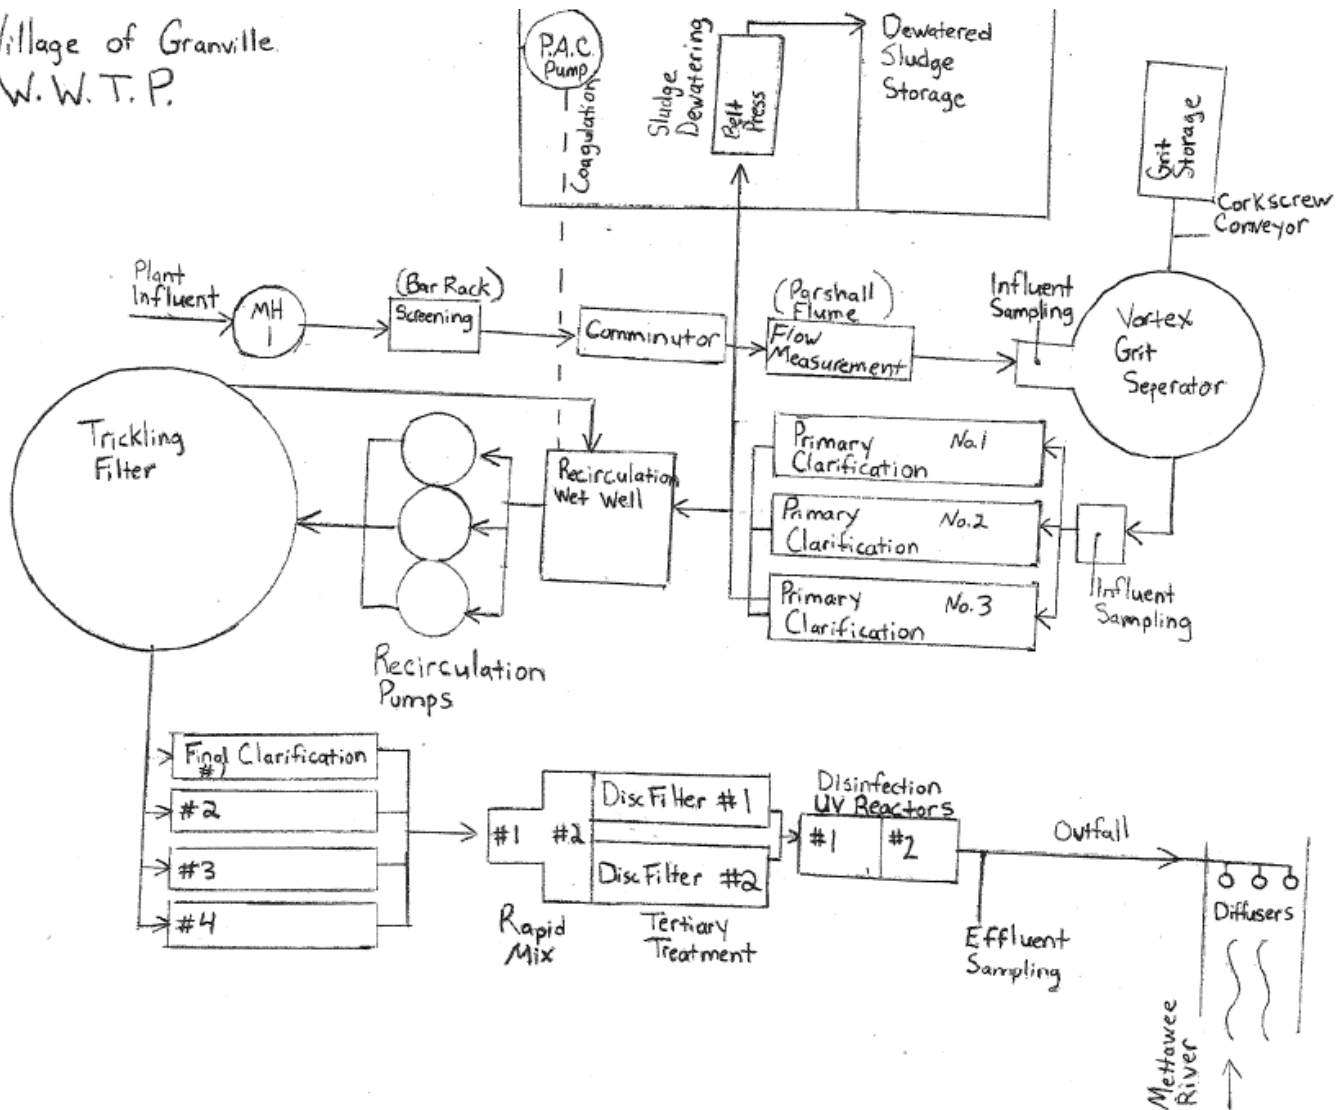 Village of Granville
W.W.T.P.
P.A.C.
Pump
Coagulation
Sludge
Dewatering
Belt
Press
Dewatered
Sludge
Storage
Grit
Storage
Corkscrew
Conveyor
Plant
Influent
MH
1
(Bar Rack)
Screening
Comminutor
(Parshall
Flume)
Flow
Measurement
Influent
Sampling
Vortex
Grit
Seperator
Trickling
Filter
Recirculation
Wet Well
Primary No.1
Clarification
Primary No.2
Clarification
Primary No.3
Clarification
Influent
Sampling
Recirculation
Pumps
Final Clarification
#1
#2
#3
#4
#1 #2
Rapid
Mix
Disc Filter #1
Disc Filter #2
Tertiary
Treatment
Disinfection
UV Reactors
#1 #2
Outfall
Effluent
Sampling
Diffusers
Mettawee
River